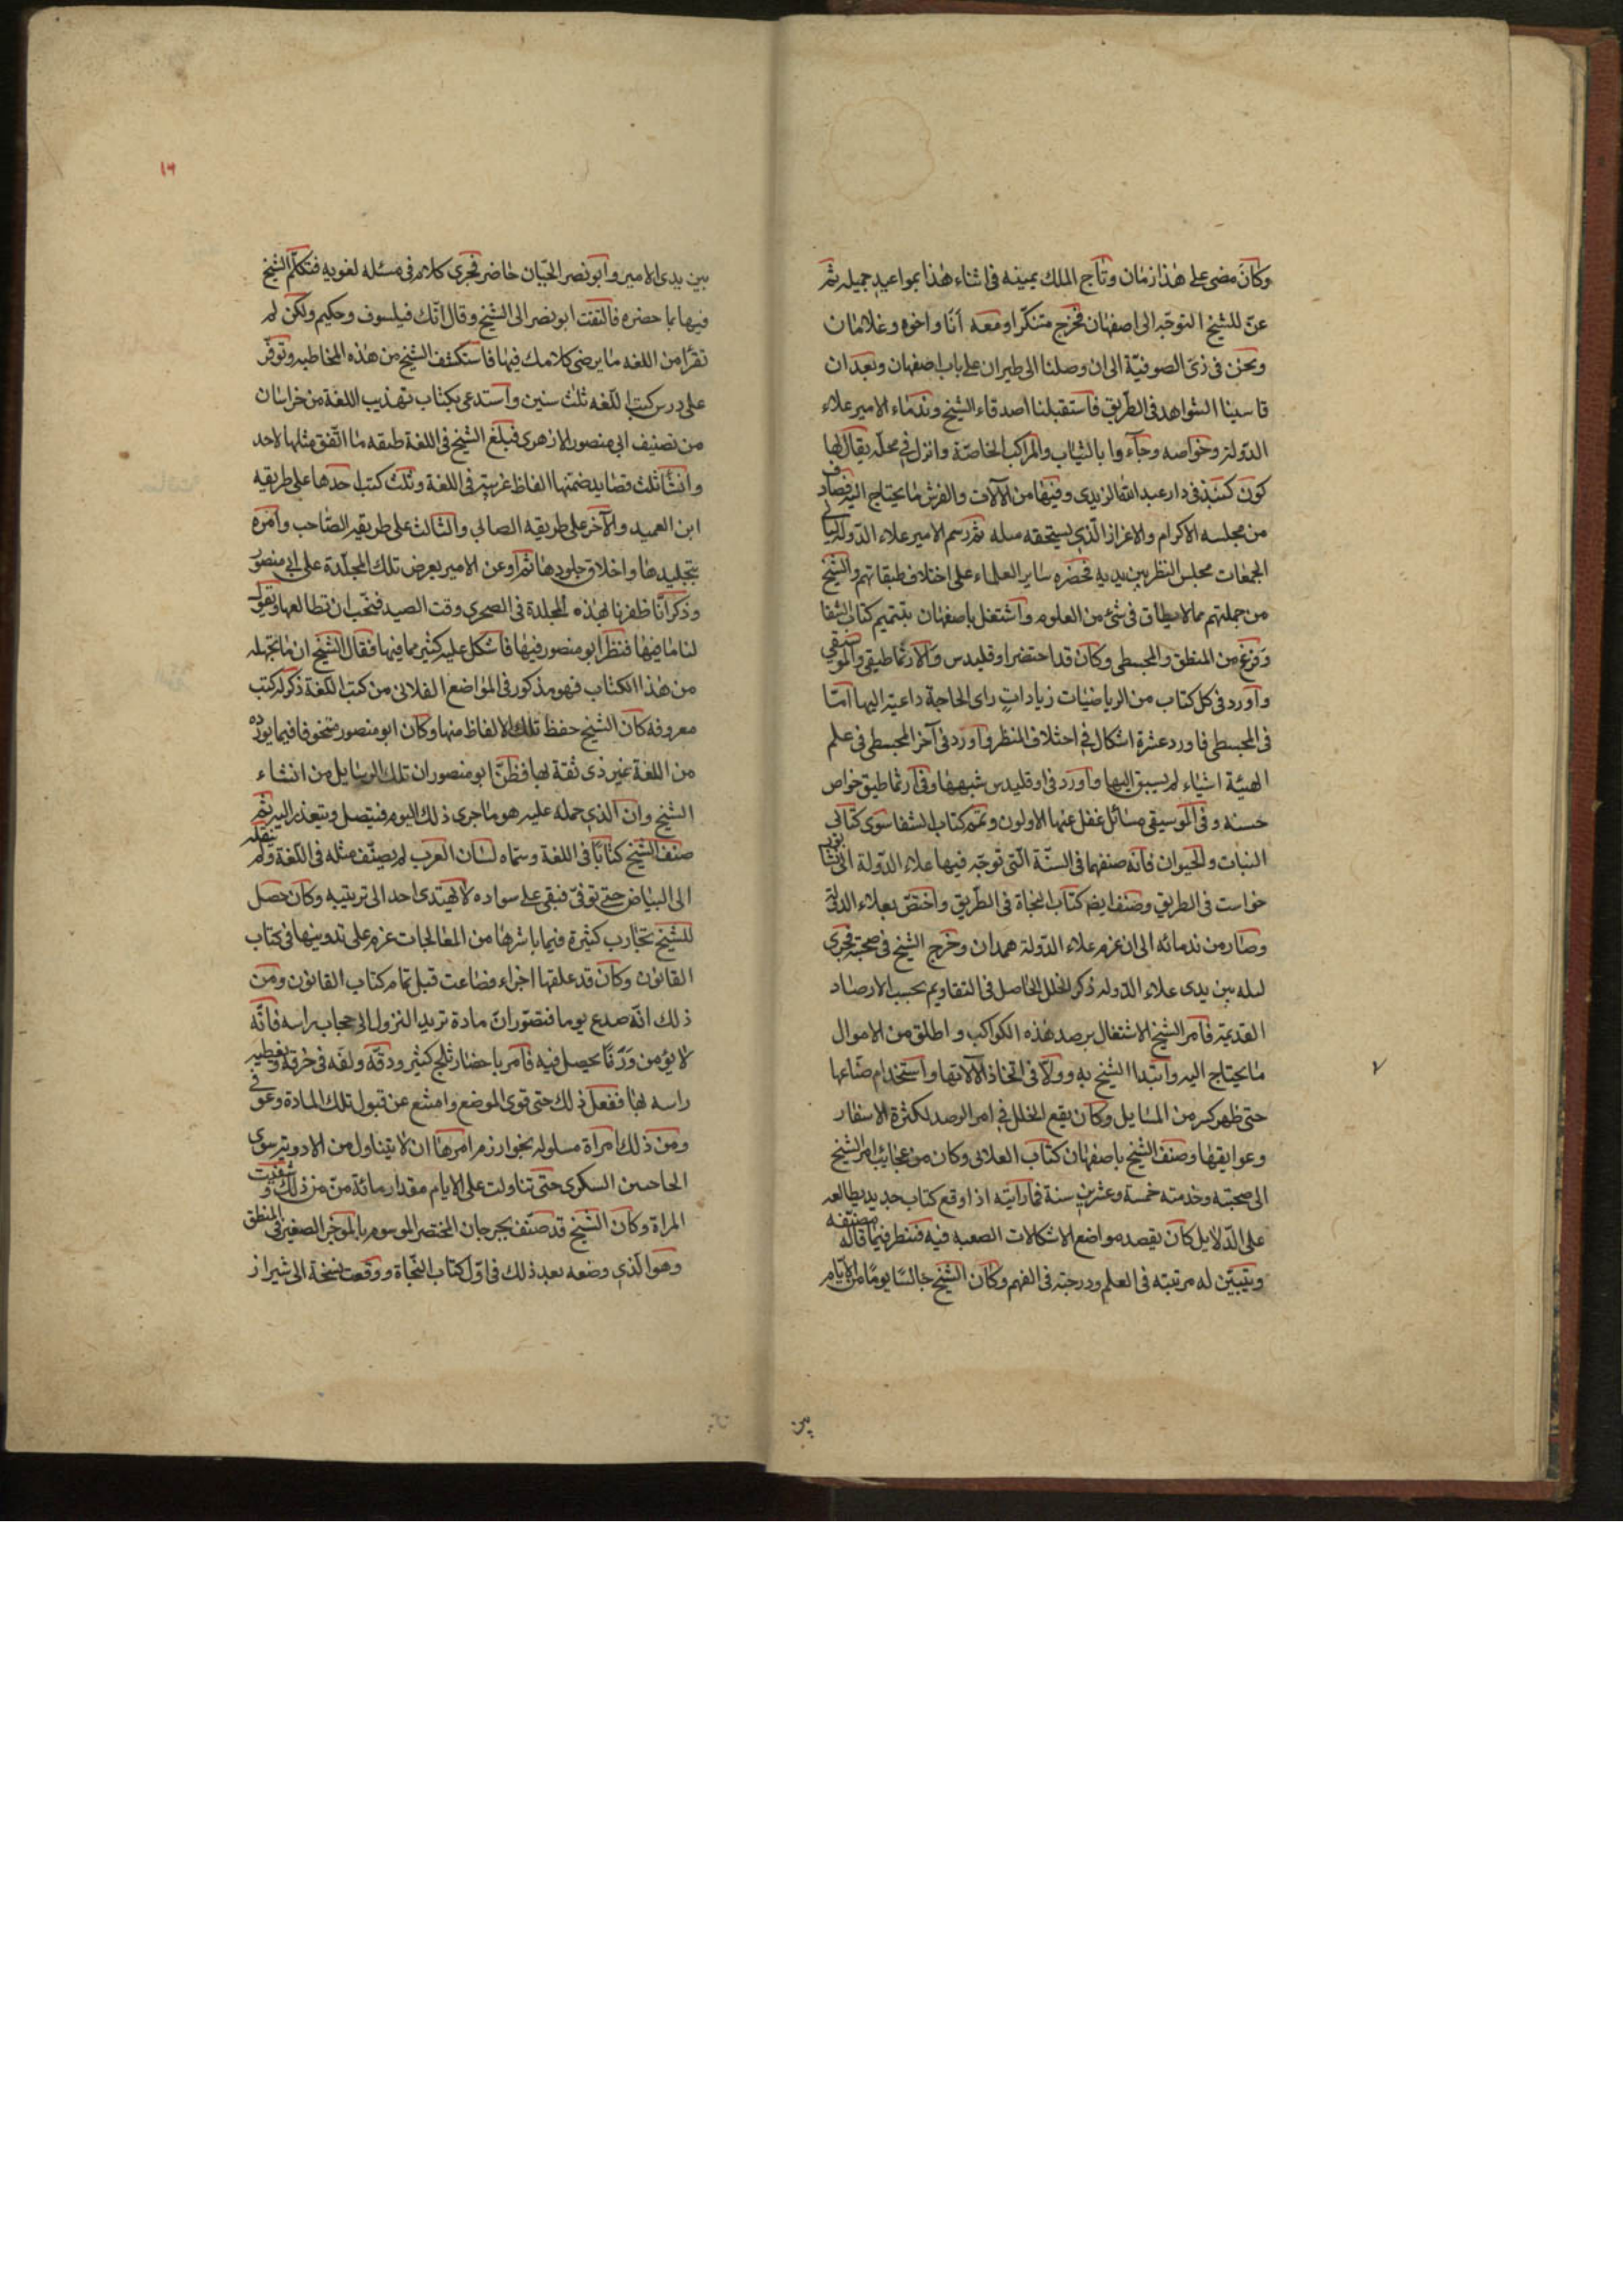 وكان مضى على هذا زمان وتاج الملك يمينه فى اثناء هذا بمواعيد جميله ثم
عنّ للشيخ التوجّه الى اصفهان فخرج متنكرا ومعه أنا واخوه وغلامان
ونحن فى زىّ الصوفيّة الى ان وصلنا الى طيران على باب اصفهان وبعد ان
قاسينا الشواهد فى الطريق فاستقبلنا اصدقاء الشيخ وندماء الامير علاء
الدولة وخواصه وجاءوا بالثياب والمراكب الخاصّة وانزل فى محلّه يقال لها
كون كنبذ فى دار عبد الله الزيدى وفيها من الآلات والفرش ما يحتاج اليه فصادف
من مجلسه الاكرام والاعزاز الّذى يستحقه مثله ثم رسم الامير علاء الدوله ليالى
الجمعات مجلس النظر بين يديه فحضره ساير العلماء على اختلاف طبقاتهم والشيخ
من جملتهم مما لا يطاق فى شئ من العلوم واشتغل باصفهان بتتميم كتاب الشفا
وفرغ من المنطق والمجسطى وكان قد احتضر اوقليدس والارثماطيقى والموسيقى
وأورد فى كل كتاب من الرياضيات زيادات راى الحاجة داعية اليها امّا
فى المجسطى فاورد عشرة اشكال فى اختلاف المنظر وأورد فى آخر المجسطى فى علم
الهيئة اشياء لم يسبق اليها وأورد فى اوقليدس شبهها وفى ارثماطيقى خواص
حسنة وفى الموسيقى مسائل غفل عنها الاولون وتمم كتاب الشفا سوى كتابى
النبات والحيوان فانه صنفهما فى السنّة الّتى توجّه فيها علاء الدّولة الى سابور
خواست فى الطريق وصنف ايضا كتاب النجاة فى الطّريق واختصّ بعلاء الدولة
وصار من ندمائه الى ان عزم علاء الدّولة همدان وخرج الشيخ فى صحبته فجرى
ليله بين يدى علاء الدّوله ذكر الخلل الحاصل فى التقاويم بحسب الارصاد
القديمة فأمر الشيخ الاشتغال برصد هذه الكواكب واطلق من الاموال
ما يحتاج اليه وابتدا الشيخ به وولاّ فى اتخاذ الآلاتها واستخدام صنّاعها
حتى ظهر كثير من المسايل وكان يقع الخلل فى امر الرصد لكثرة الاسفار
وعوايقها وصنف الشيخ باصفهان كتاب العلائى وكان من عجايب امر الشيخ
الى صحبته وخدمته خمسة وعشرين سنة فما رأيته اذا وقع كتاب جديد يطالعه
على الدّلايل كان يقصد مواضع الاشكالات الصعبه فيه فننظر فيما قاله مصنّفه
ويتبيّن له مرتبته فى العلم ودرجته فى الفهم وكان الشيخ جالسًا يومًا من الايّام
٧
بين
١٦
بين يدى الامير وابو نصر الجبّان حاضر فجرى كلام فى مسئله لغويه فتكلّم الشيخ
فيها بما حضره فالتفت ابو نصر الى الشيخ وقال انّك فيلسوف وحكيم ولكن لم
تقرأ من اللغه ما يرضى كلامك فيها فاستنكف الشيخ من هذه المخاطبه وتوفّر
على درس كتب اللّغه ثلث سنين واستدعى بكتاب تهذيب اللغة من خراسان
من تصنيف ابى منصور الازهرى فبلغ الشيخ فى اللغة طبقه ما اتّفق مثلها لاحد
وانشأ ثلث قصايد ضمّنها الفاظ غريبة فى اللغة وثلث كتب احدها على طريقه
ابن العميد والآخر على طريقه الصابى والثالث على طريقه الصّاحب وأمره
بتجليدها واخلاق جلودها ثم اوعن الامير بعرض تلك المجلّدة على ابى منصور
وذكر انّا ظفرنا بهذه المجلدة فى الصحرى وقت الصيد فنحبّ ان تطالعها وتقول
لنا ما فيها فنظر ابو منصور فيها فاشكل عليه كثير مما فيها فقال الشيخ ان ما تجهله
من هذا الكتاب فهو مذكور فى المواضع الفلانى من كتب اللّغة ذكر له كتب
معروفه كان الشيخ حفظ تلك الالفاظ منها وكان ابو منصور متخوفا فيما يورده
من اللغة غير ذى ثقة لها فظنّ ابو منصور ان تلك الرسايل من انشاء
الشيخ وان الّذى حمله عليه هو ما جرى ذلك اليوم فنيتصل ويتعذر اليه ثم
صنف الشيخ كتابًا فى اللغة وسمّاه لسان العرب لم يصنّف مثله فى اللّغة ولم ينقله
الى البياض حتى توفىّ فبقى على سواده لا يهتدى احد الى تربتيبه وكان حصل
للشيخ تجارب كثيرة فيما باشرها من المعالجات عزم على تدوينها فى كتاب
القانون وكان قد علقها اجزاء فضاعت قبل تمام كتاب القانون ومن
ذلك انّه صدع يوما فتصوّر ان مادة تريد النزول الى حجاب راسه فانّه
لا يؤمن ورمًا يحصل فيه فأمر باحضار ثلج كثير ودقّه ولفّه فى خرقة وتغطيه
راسه لها ففعل ذلك حتى قوى الموضع وامتنع عن قبول تلك المادة وعوفى
ومن ذلك امراة مسلوله بخوارزم امرها ان لا يتناول من الادوية سوى
الجلحبين السكرى حتى تناولت على الايام مقدار مائة منّ من ذلك وشفيت
المراة وكان الشيخ قد صنّف بجرجان المختصر الموسوم بالموجز الصغير فى المنطق
وهو الّذى وضعه بعد ذلك فى اوّل كتاب النّجاة ووقعت نسخة الى شيراز